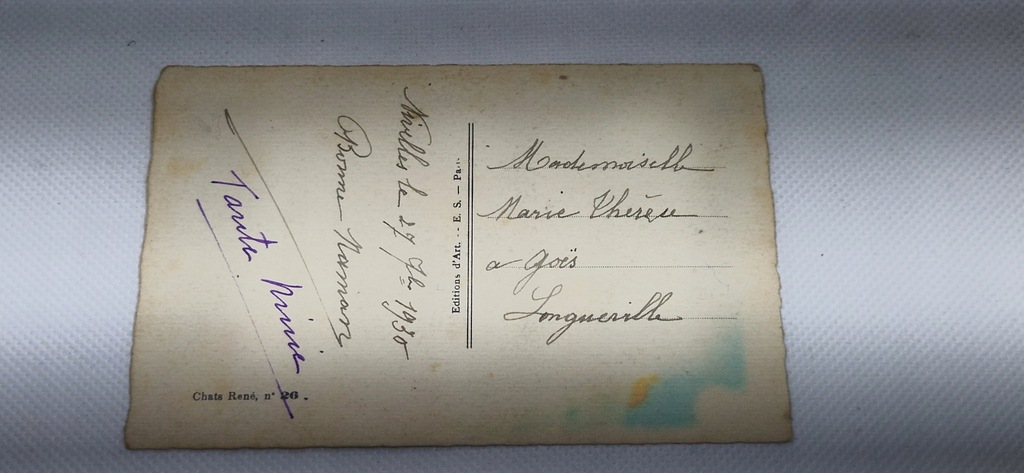 Nivelles le 27 7b 1930
Bonne Maman
Tante Mimie
Editions d'Art. -- E. S. — Paris
Mademoiselle
Marie Thérèse
a Goës
Longueville
Chats René, n° 26.